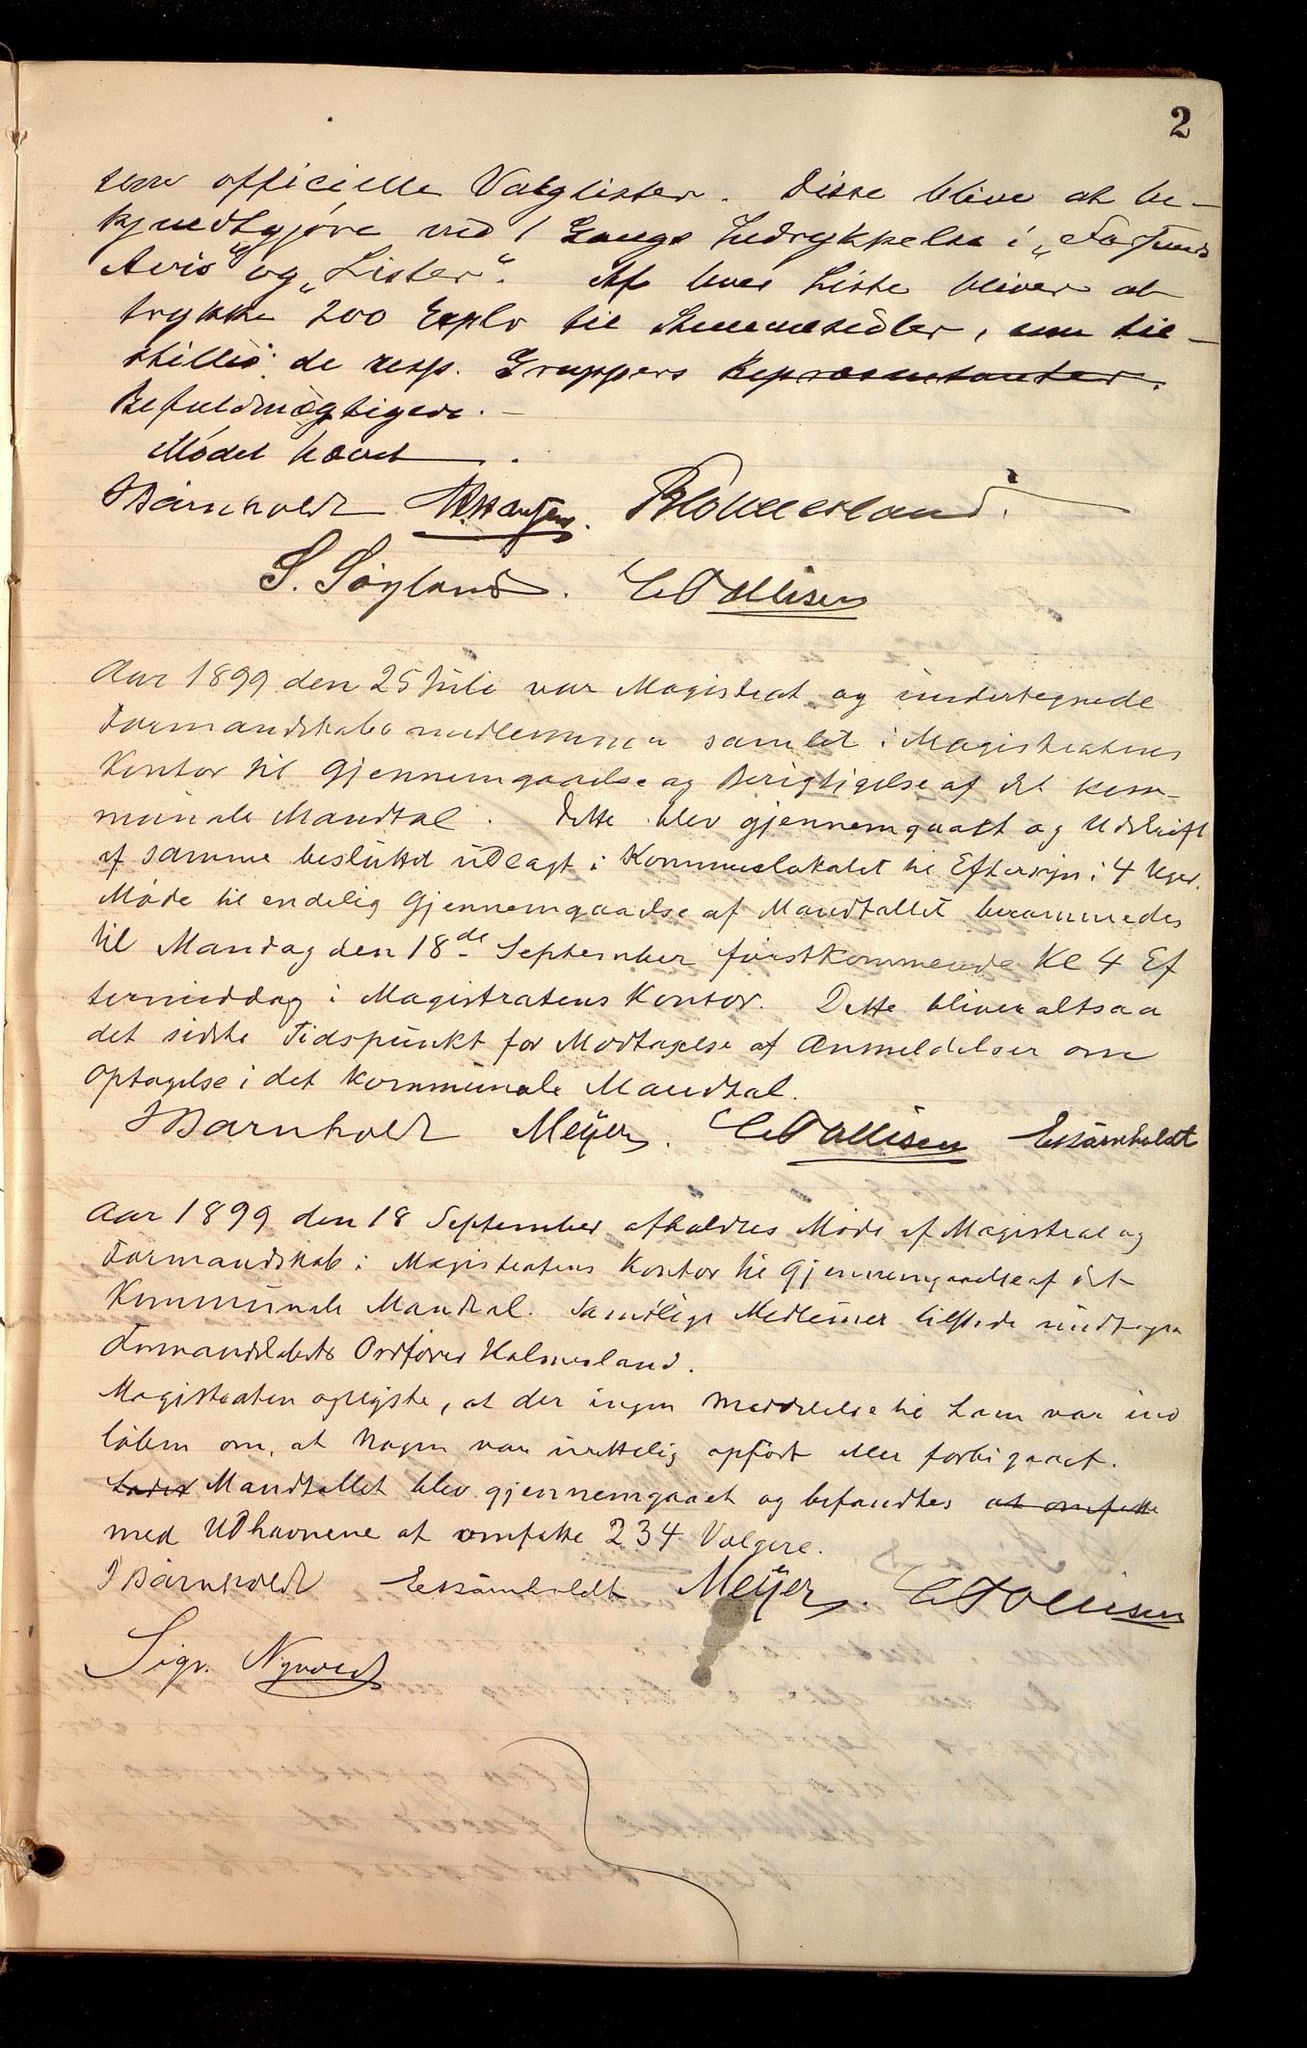 2
som officielle Valglister. Disse blive at be-
kjendtgjöre ved 1 Gangs Indrykkelse i „Farsunds
Avis" og „Lister". Af hver Liste bliver at
trykke 200 Explr til Stemmesedler, som til-
stilles de resp. Gruppers Repræsentanter.
Befuldmægtigede. -
Mödet hævet.
J Barnholdt
S. Sögland. C Tallisen
Aar 1899 den 25 Juli var Magistrat og undertegnede
Formandskabsmedlemmer samlet i Magistratens
Kontor til Gjennemgaaelse og Berigtigelse af det kom-
munale Mandtal. Dette blev gjennemgaaet og Udskrift
af samme besluttet udlagt i Kommunelokalet til Eftersyn i 4 Uger.
Möde til endelig Gjennemgaaelse af Mandtallet berammedes
til Mandag den 18de September förstkommende Kl 4 Ef
termiddag i Magistratens Kontor. Dette bliver altsaa
det sidste Tidspunkt for Modtagelse af Anmeldelser om
Optagelse i det kommunale Mandtal.
J Barnholdt Meÿer. C Tallisen E Barnholdt
Aar 1899 den 18 September afholdtes Möde af Magistrat og
Formandskab i Magistratens Kontor til Gjennemgaaelse af det
Kommunale Mandtal. Samtlige Medlemmer tilstede undtagen
Formandskabets Ordförer Holmesland.
Magistraten oplyste, at der ingen Meddelelse til ham var ind
löben om, at Nogen var urettelig opfört eller forbigaaet.
Mandtallet blev gjennemgaaet og befandtes at omfatte
med Udhavnene at omfatte 234 Vælgere.
J Barnholdt E Barnholdt Meÿer. C Tallisen
Sigv. Nyvold